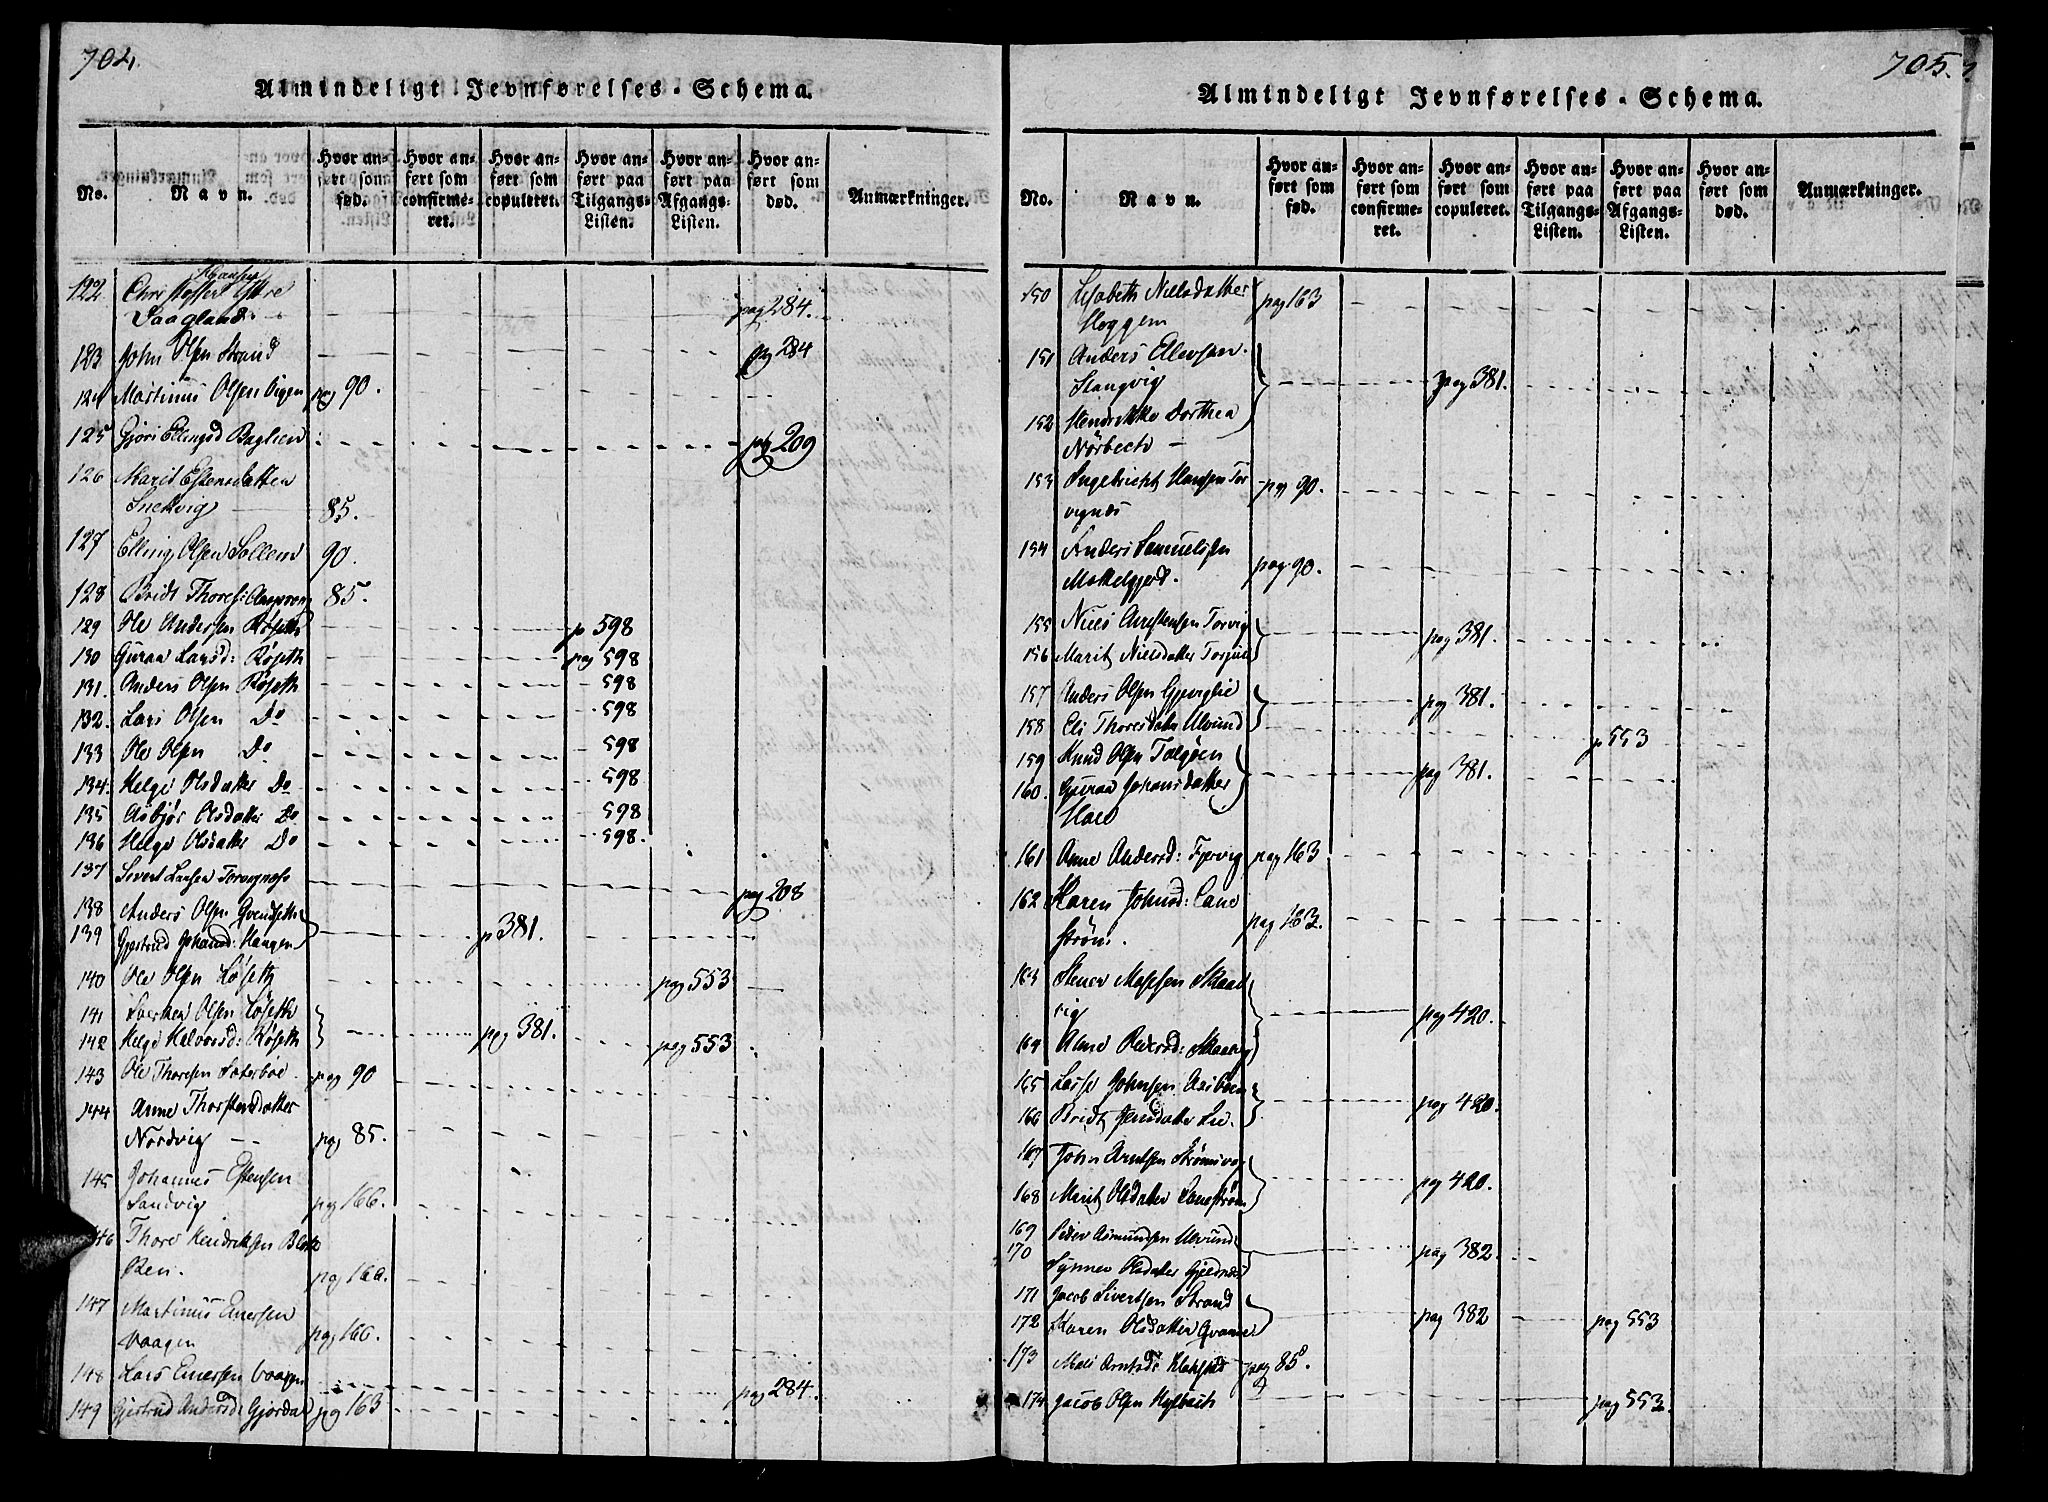 704.
Almindeligt Jevnførelses-Schema.
No. Navn. Hvor anført som fød. Hvor anført som confirmeret. Hvor anført som copuleret. Hvor anført paa Tilgangs-Listen. Hvor anført paa Afgangs-Listen. Hvor anført som død. Anmærkninger.
122 Christopher Hansen Ystre
Saagland pag 284.
123 John Olsen Strand pag 284
124 Martinus Olsen Vigen pag 90.
125 Gjøri Ellingsd Baglien pag 209
126 Marit Estensdatter
Snekvig 85.
127 Elling Olsen Sollem 90.
128 Bridt Thores: 85.
129 Ole Andersen Røseth p 598
130 Guraa Larsd: Røseth pag 598
131. Anders Olsen Røseth 598
132. Lars Olsen Do 598
133 Ole Olsen Do 598
134. Helge Olsdatter Do 598
135 Asbjør Olsdatter Do 598
136 Helge Olsdatter Do 598.
137 Sivert Larsen Torvignæss pag 208
138 Anders Olsen Qvendseth
139 Gjertrud Johansd: Haagen p 381.
140 Ole Olsen Røseth pag 553
141 Olsen Røseth
142 Helge Halvorsd: Røseth pag 381. pag 553
143 Ole Thoresen Sæterboe pag 90
144 Anne Thorstensdatter
Nordvig pag 85.
145 Johannes Estensen
Sandvig pag 166.
146 Thore Hendriksen
pag 166.
147 Martinus Einersen
Vaagen pag 166.
148 Lars Einersen Vaagen pag 284.
149 Gjertrud Andersd: Gjørdal pag 163
705.
Almindeligt Jevnførelses-Schema.
No. Navn. Hvor anført som fød. Hvor anført som confirmeret. Hvor anført som copuleret. Hvor anført paa Tilgangs-Listen. Hvor anført paa Afgangs-Listen. Hvor anført som død. Anmærkninger.
150 Lisabeth Nielsdatter
Hoggem pag 163
151 Anders Ellevsen
Stangvig pag 381.
152 Hendrikke Dorthea
Nörbech
153 Ingebricht Hansen Tor
vignæs pag 90.
154 Anders Samuelsen
Mokkelgjerd. pag 90.
155 Niels Torvig
156 Marit Nielsdatter Torvig pag 381.
157 Anders Olsen
158 Eli Thoresdatter Ulvund pag 381.
p 553
159 Knud Olsen Talgöen
160. Guraa Johansdatter
Hals pag 381.
161 Anne Andersd: Fjervig pag 163
162 Karen Johnsd: Lane
ström. pag 163.
163 Mossesen Skaal
vig pag 420.
164 Anne Skaalvig
165 Lasse Johnsen
166 Bridt Jensdatter Lie. pag 420.
167 John Arntsen
168 Marit Olsdatter Laneström pag 420.
169 Peder Asmundsen Ulvund
170 Synnev Olsdatter Gjeldnæs pag 382.
171 Jacob Sivertsen Strand
172 Karen Olsdatter Qvanne pag 382 pag 553
173 Mali Arntsd: pag 85.
174 Jacob Olsen pag 553.